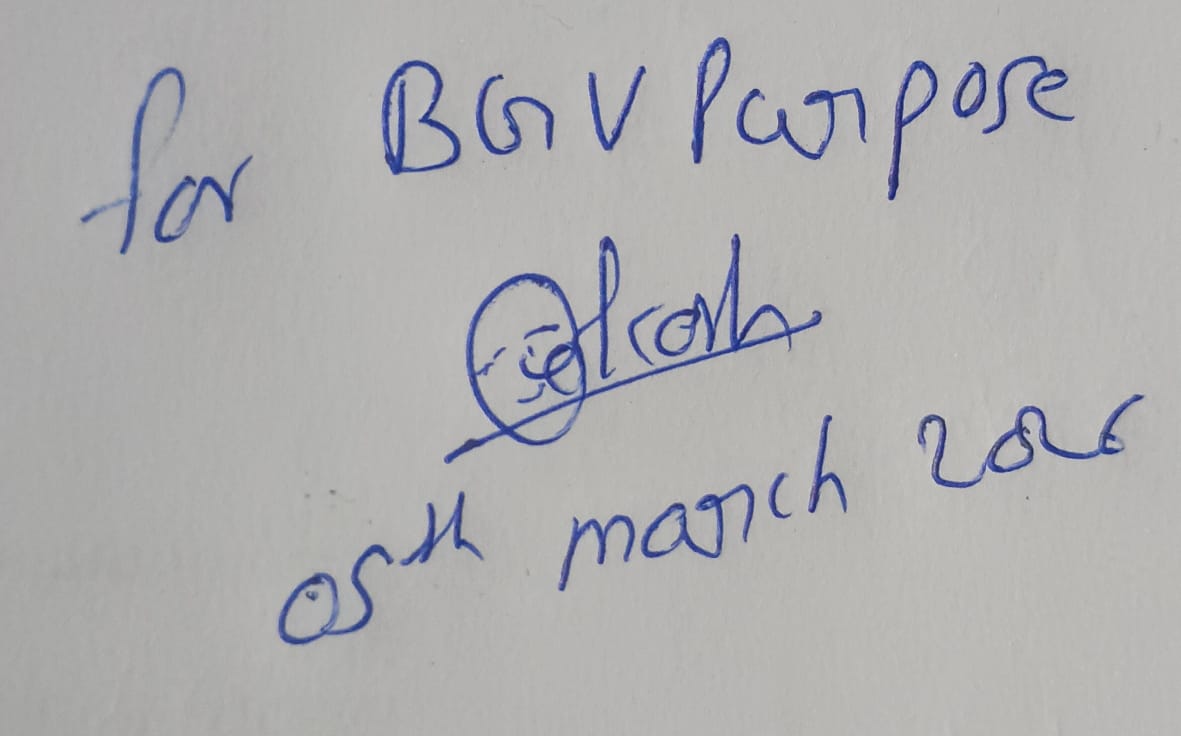 for BGV Purpose
05th march 2026